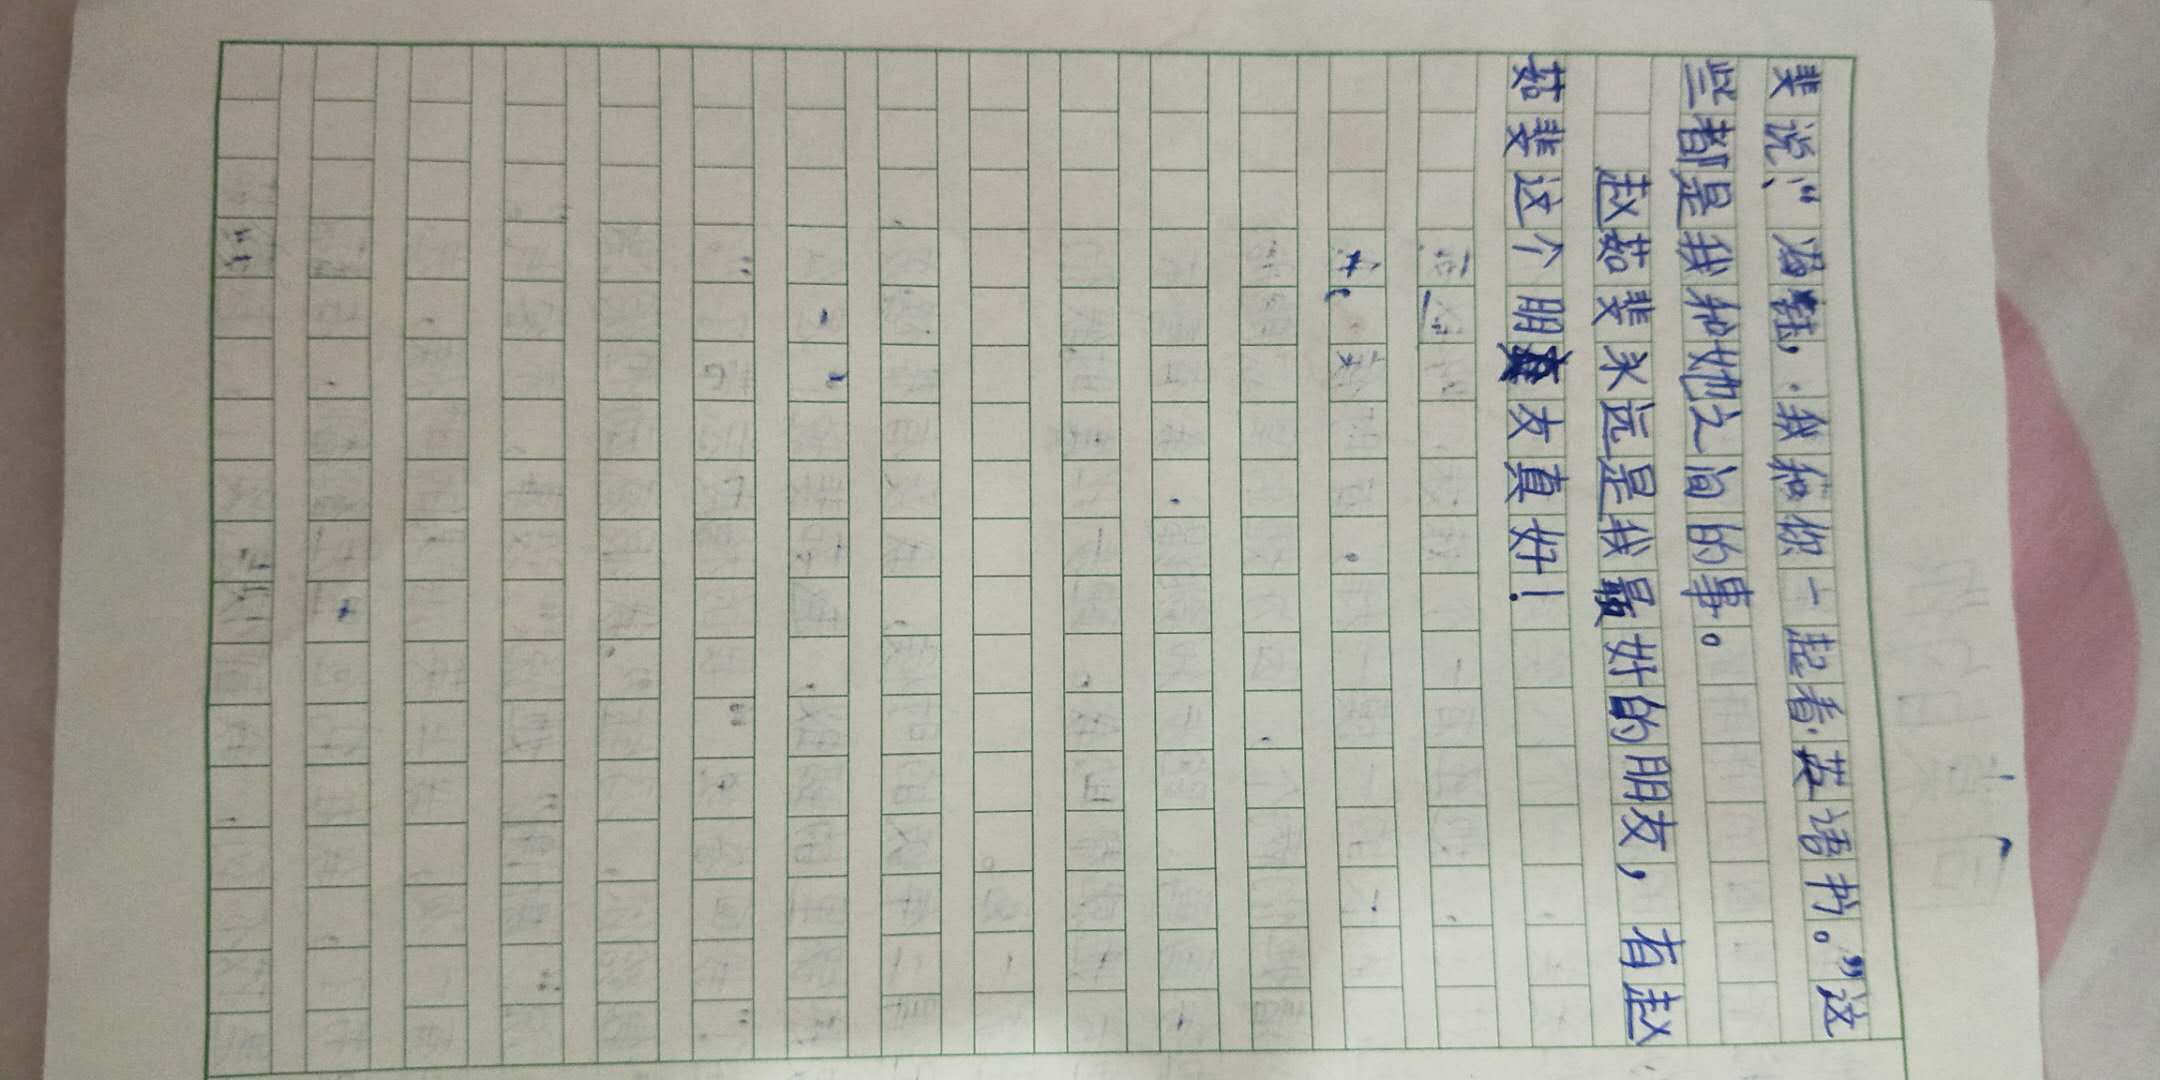 斐说:“,我和你一起看英语书。”这
些都是我和她之间的事。
赵茹斐永远是我最好的朋友,有赵
茹斐这个朋友真好!